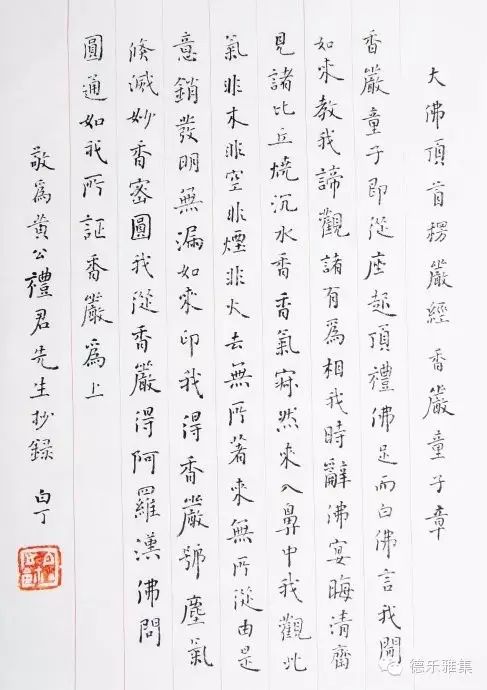 大佛頂首楞嚴經香嚴童子章
香嚴童子即從座起頂禮佛足而白佛言我聞
如來教我諦觀諸有為相我時辭佛宴晦清齋
見諸比丘燒沉水香香氣寂然來入鼻中我觀此
氣非木非空非煙非火去無所著來無所從由是
意銷發明無漏如來印我得香嚴號塵氣
倏滅妙香密圓我從香嚴得阿羅漢佛問
圓通如我所証香嚴為上
敬為黃公禮君先生抄錄 白丁
德乐雅集